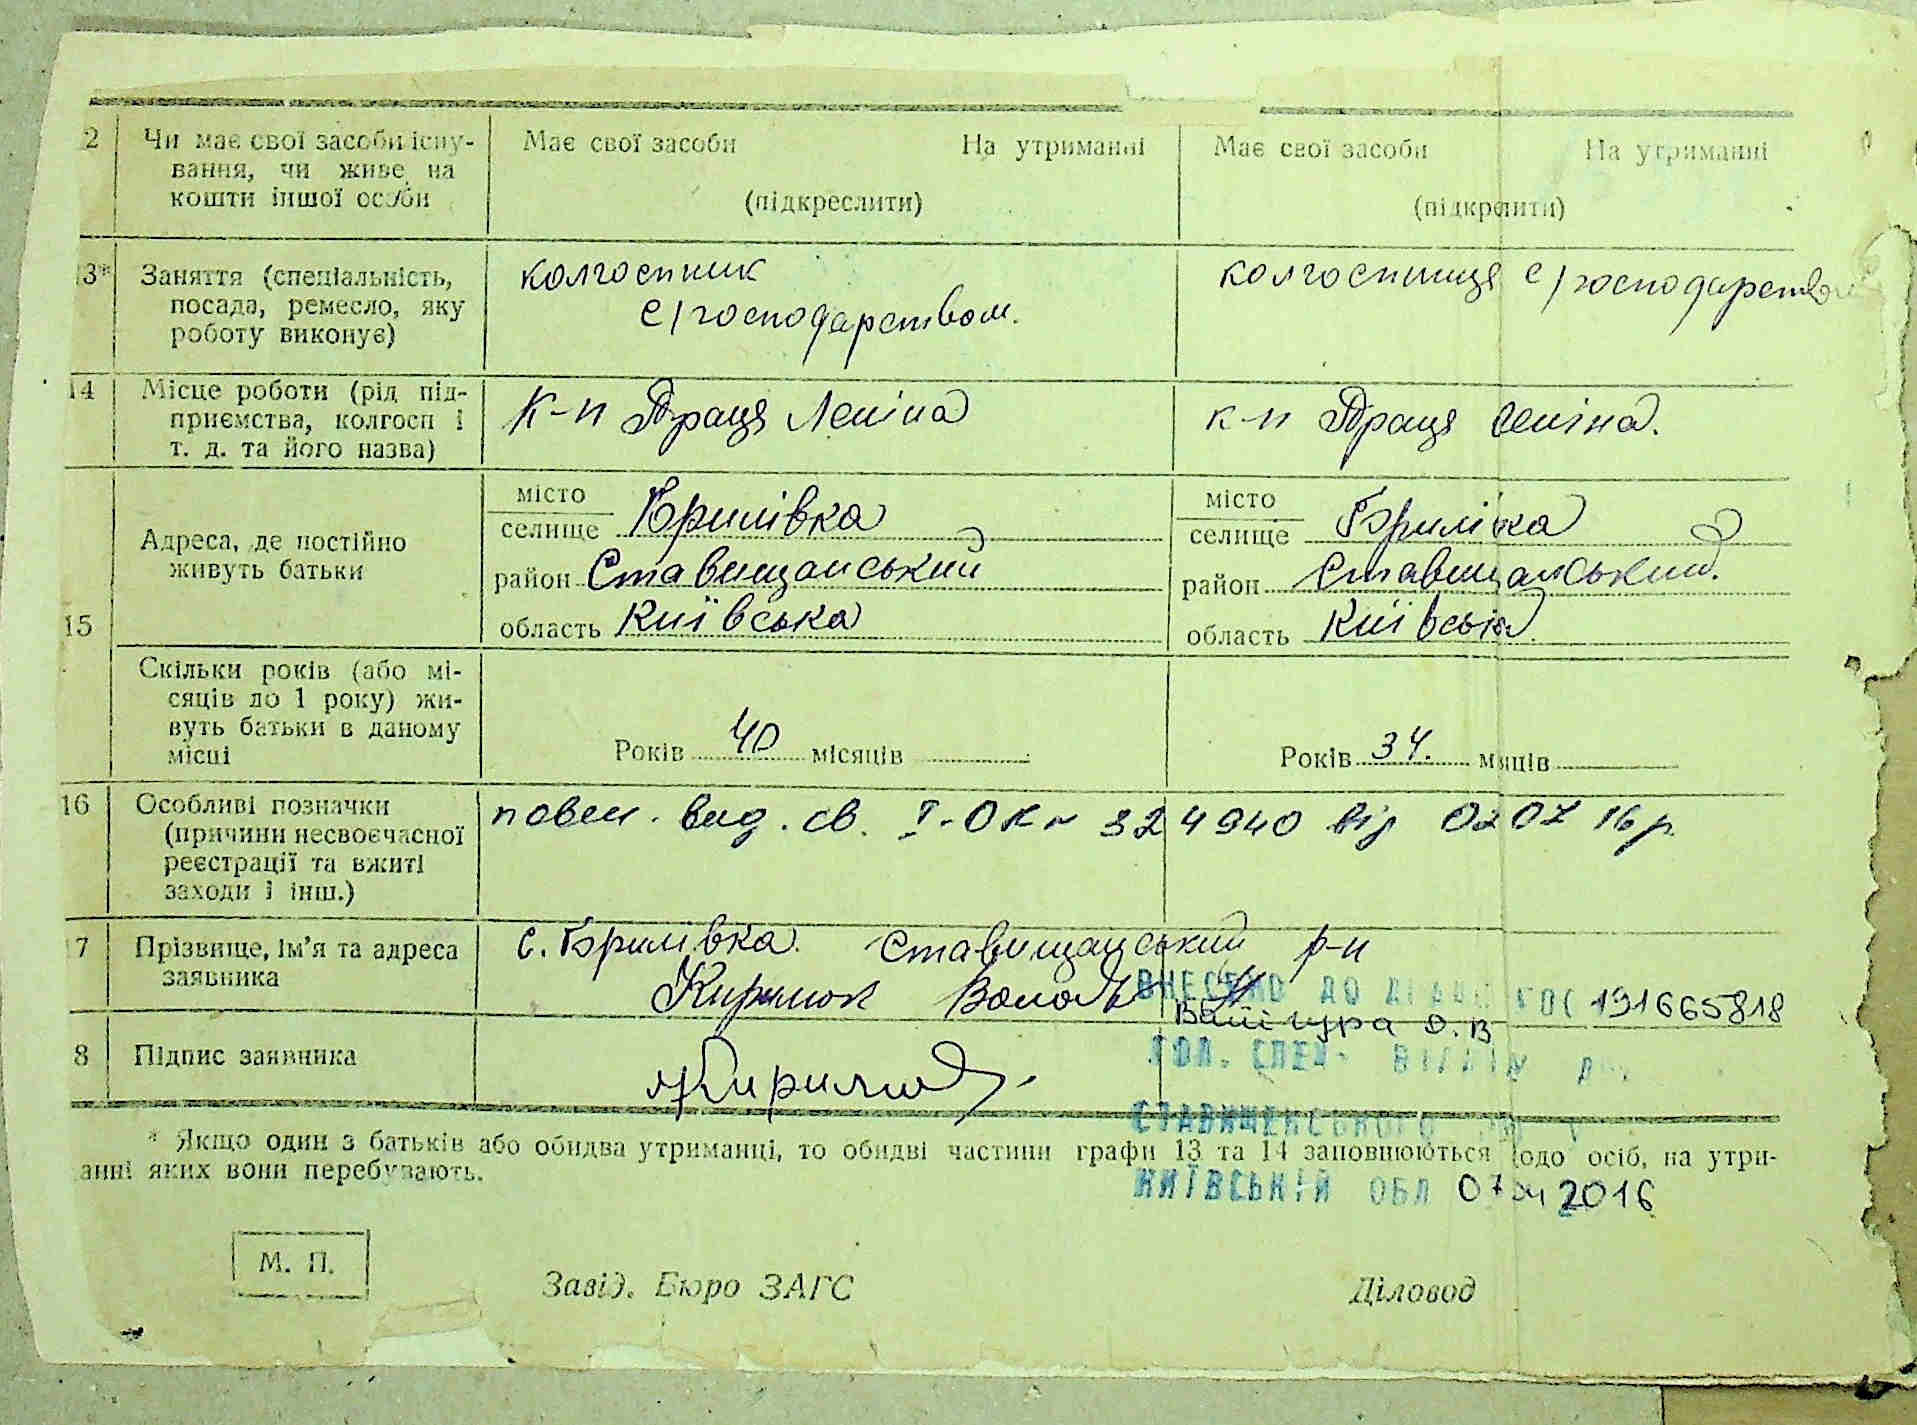 2 Чи має свої засоби існу- Має свої засоби На утриманні Має свої засоби На утриманні
вання, чи живе на
кошти іншої особи (підкреслити) (підкрелити)
13* Заняття (спеціальність, колгоспник колгоспниця с/господарством
посада, ремесло, яку с/господарством.
роботу виконує)
14 Місце роботи (рід під- К-п Праця Леніна к-п Праця Леніна.
приємства, колгосп і
т. д. та його назва)
15 Адреса, де постійно
живуть батьки
місто
селище Брилівка
район Ставищанський
область Київська
місто
селище Брилівка
район Ставищанський.
область Київська
Скільки років (або мі-
сяців до 1 року) жи-
вуть батьки в даному
місці
Років 40 місяців Років 34. мяців
16 Особливі позначки повт. вид. св. І-ОК № 324940 від 02 07 16 р.
(причини несвоєчасної
реєстрації та вжиті
заходи і інш.)
17 Прізвище, ім'я та адреса с. Брилівка. Ставищанський р-н
заявника Кирилюк
ВНЕСЕНО ДО 191665818
О. В
8 Підпис заявника
ГОЛ. СПЕЦ. ВІДДІЛУ
СТАВИЩЕНСЬКОГО
* Якщо один з батьків або обидва утриманці, то обидві частини графи 13 та 14 заповнюються щодо осіб, на утри-
анні яких вони перебувають.
КИЇВСЬКІЙ ОБЛ 2016
М. П.
Завід. Бюро ЗАГС Діловод